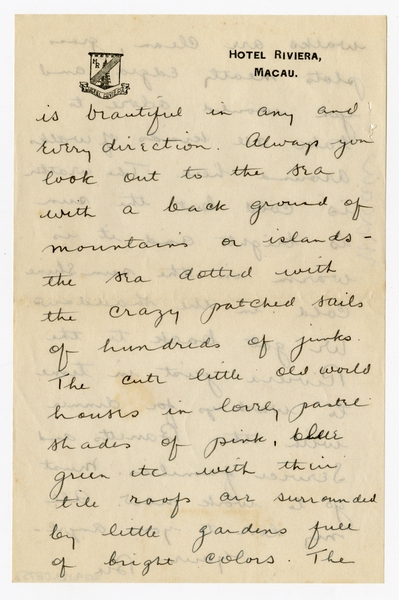 HOTEL RIVIERA,
MACAU.
is beautiful in any and
every direction. Always you
look out to the sea
with a back ground of
mountains or islands -
the sea dotted with
the crazy patched sails
of hundreds of junks.
The cute little old world
houses in lovely pastel
shades of pink, blue
green etc with their
tile roofs are surrounded
by little gardens full
of bright colors. The